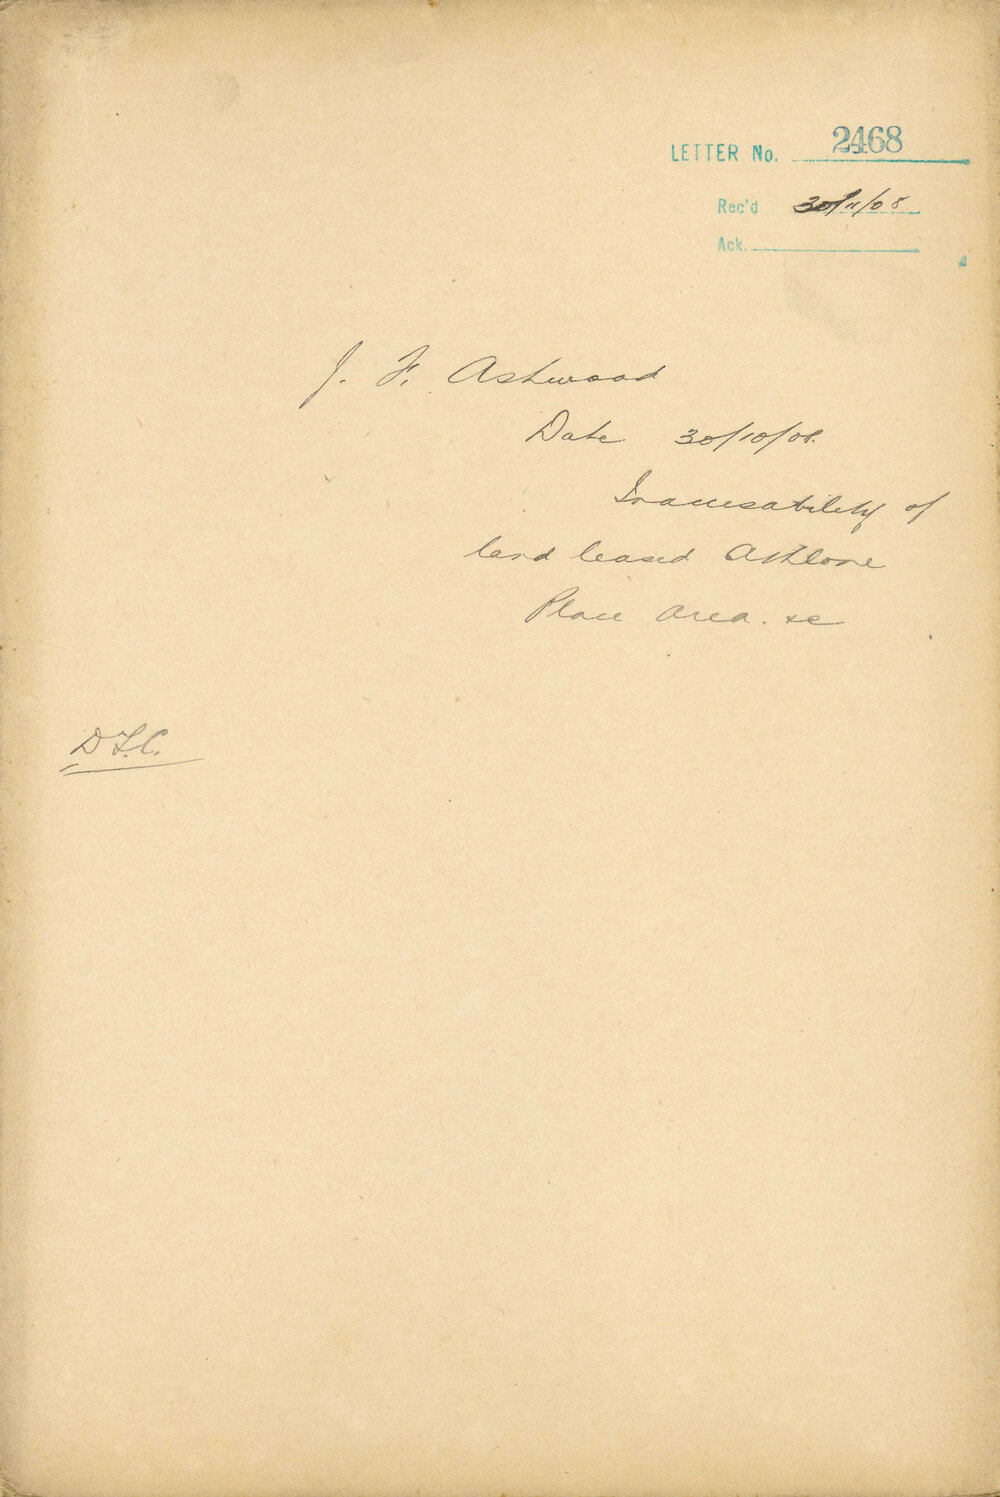 LETTER No. 2468
Rec'd 30/11/08
Ack.
J. F. Ashwood
Date 30/10/08.
Inaccesability of
land leased Athlone
Place Area. &c
D.T.C.